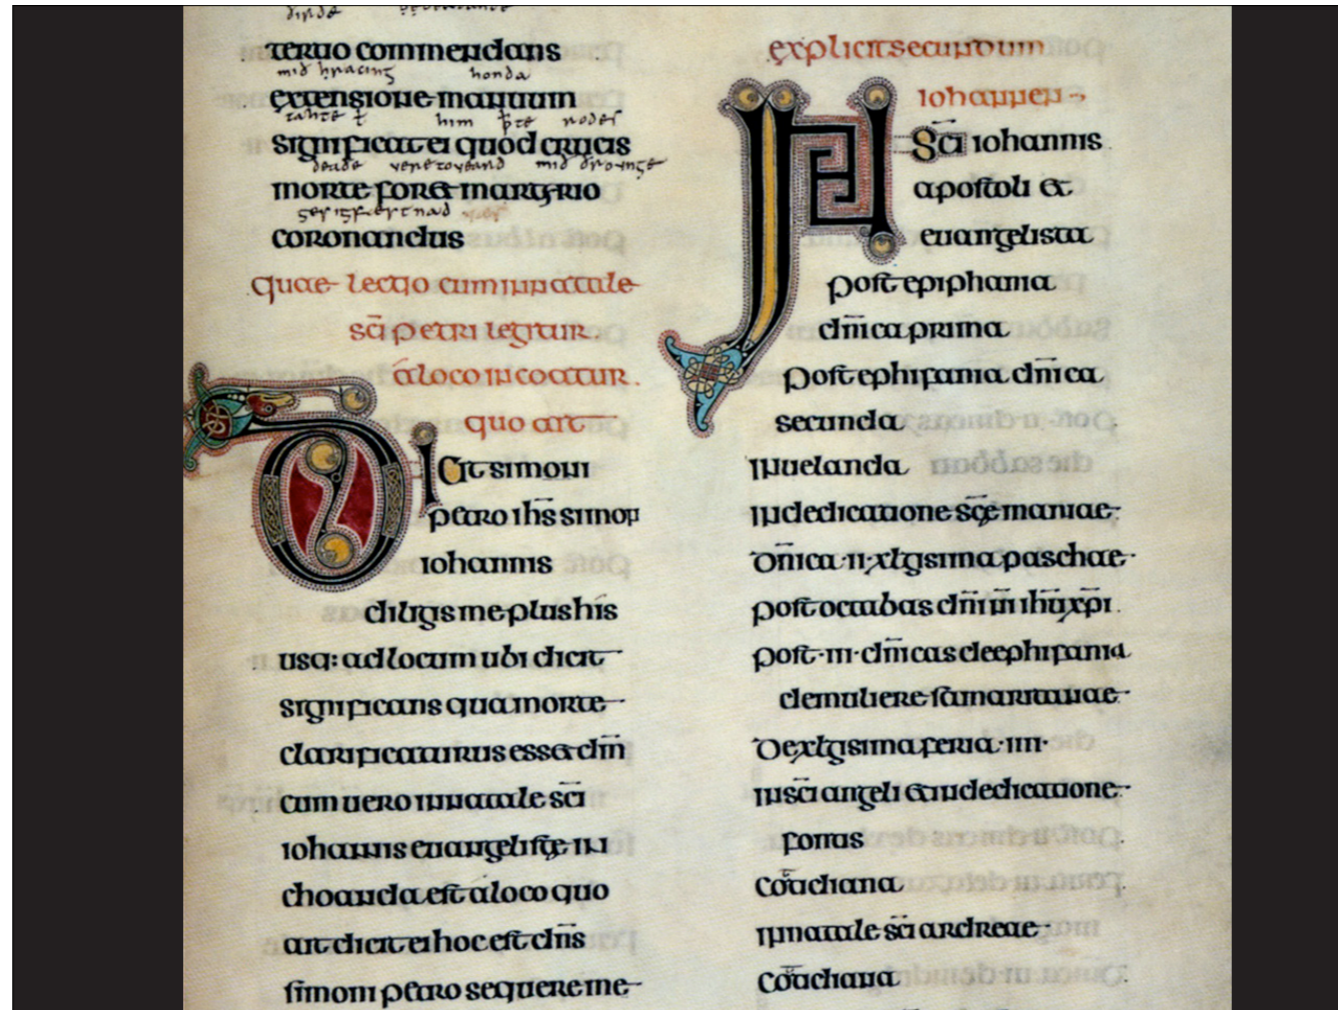 tertio commendans
mid honda
extensione manuum
him þte rodes
significat ei quod crucis
mid
morte foret martyrio
coronandus
quae lectio cum in natale
sc̄i petri legitur
á loco incoatur
quo ait
Dicit simoni
petro ihs̄ simon
iohannis
diligis me plus his
usq: ad locum ubi dicit
significans qua morte
clarificaturus esset dm̄
cum uero in natale sc̄i
iohannis euangelistę in
choanda est á loco quo
ait dicit ei hoc est dn̄s
simoni petro sequere me
explicit secundum
iohannen
IN Sc̄i iohannis
apostoli et
euangelista
post epiphania
dn̄ica prima
post ephifania dn̄ica
secunda
in uelanda
in dedicatione sc̄ę mariae
Dn̄ica ·II· xlgisima paschae
post octabas dn̄i n̄i ihū xp̄i
post ·III· dn̄icas de ephifania
de muliere samaritanae
De xlgisima feria ·IIII·
in sc̄i angeli et in dedicatione
fontis
Cotidiana
in natale sc̄i andreae
Cotidiana